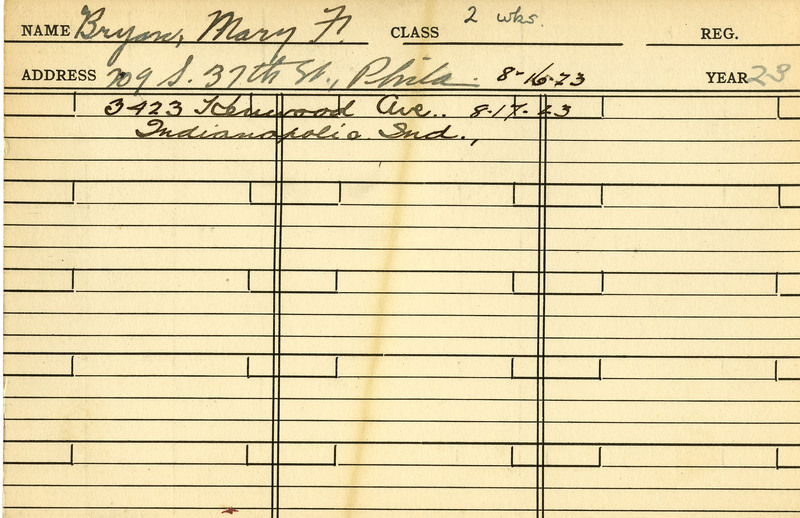 NAME Bryan, Mary F. CLASS 2 wks. REG.
ADDRESS 709 S. 37th St., Phila. 8-16-23 YEAR 23
3423 Kenwood Ave.. 8-17-23
Indianapolis Ind.,